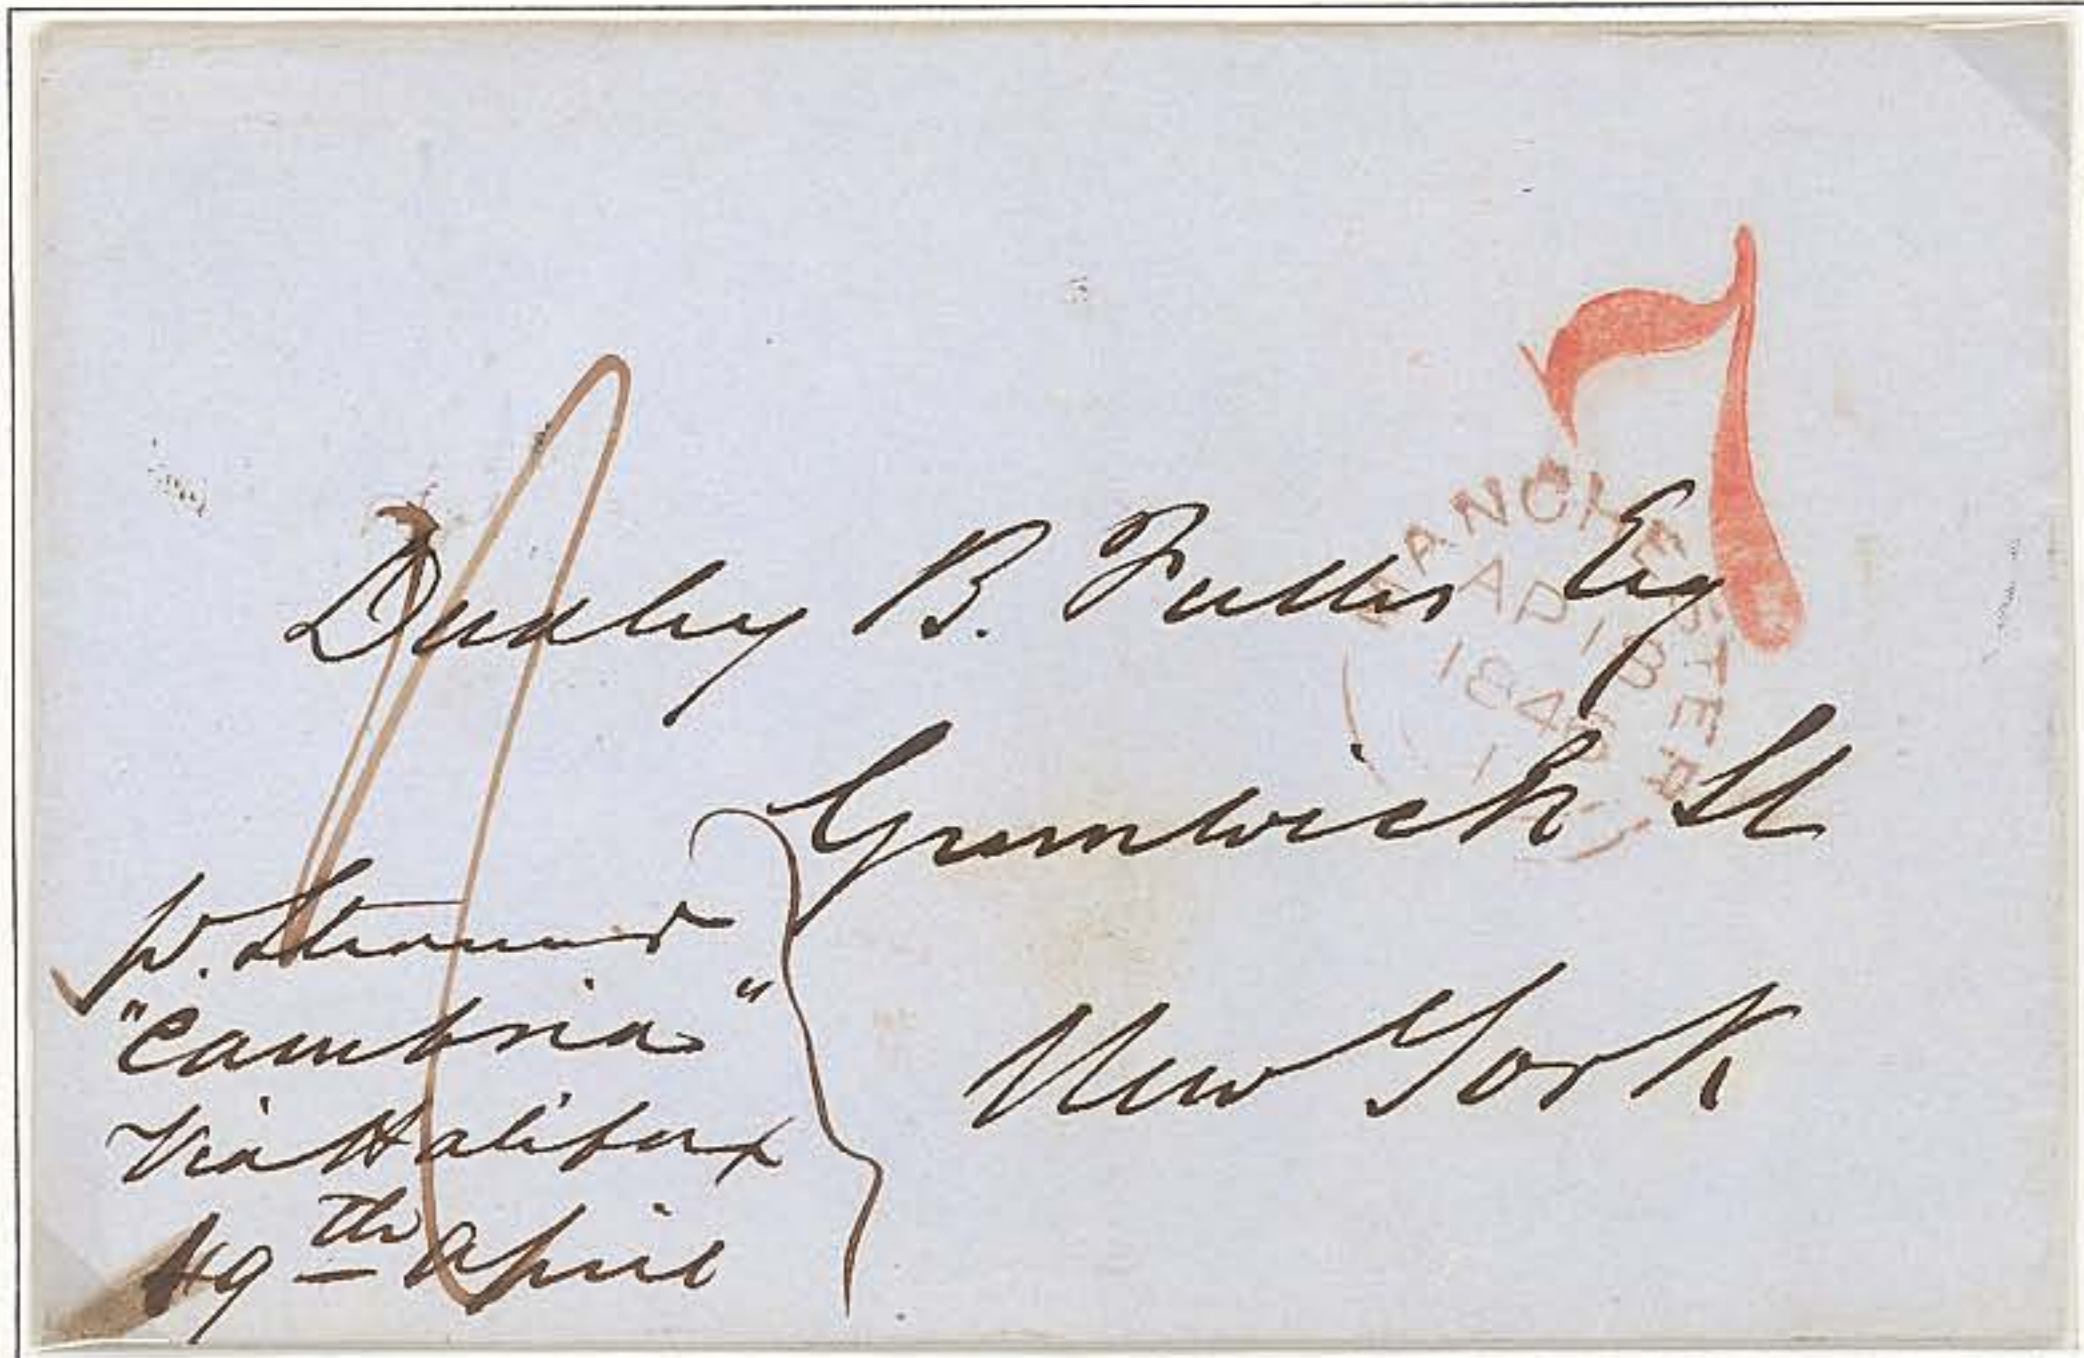 7
MANCHESTER
AP 18
1846
1
Dudley B. Fuller Esq
Greenwich St
New York
p. Steamer
"Cambria"
Via Halifax
19th April